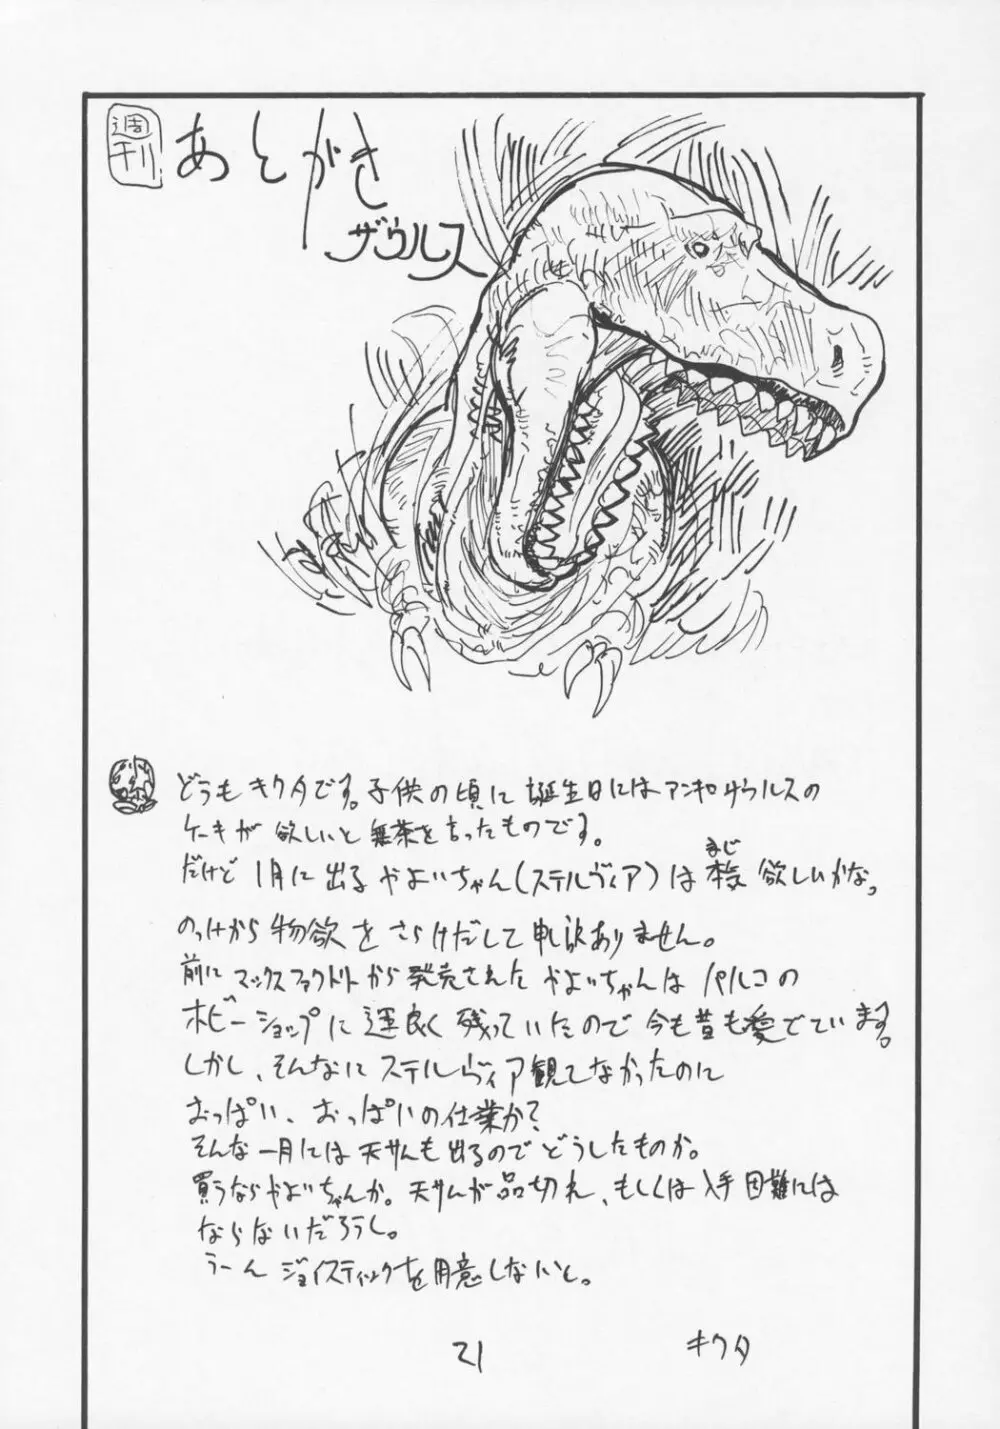 週刊
あとがき
ザウルス
どうもキクタです。子供の頃に誕生日にはアンキロザウルスの
ケーキが欲しいと無茶を言ったものです。
だけど1月に出るやよいちゃん(ステルヴィア)は本気 欲しいかな。
まじ
のっけから物欲をさらけだして申し訳ありません。
前にマックスファクトリーから発売されたやよいちゃんはパルコの
ホビーショップに運良く残っていたので今も昔も愛でています。
しかし、そんなにステルヴィア観てなかったのに
おっぱい、おっぱいの仕業か?
そんな一月には天サムも出るのでどうしたものか。
買うならやよいちゃんか。天サムが品切れ、もしくは入手困難には
ならないだろうし。
うーん ジョイスティックを用意しないと。
21
キクタ